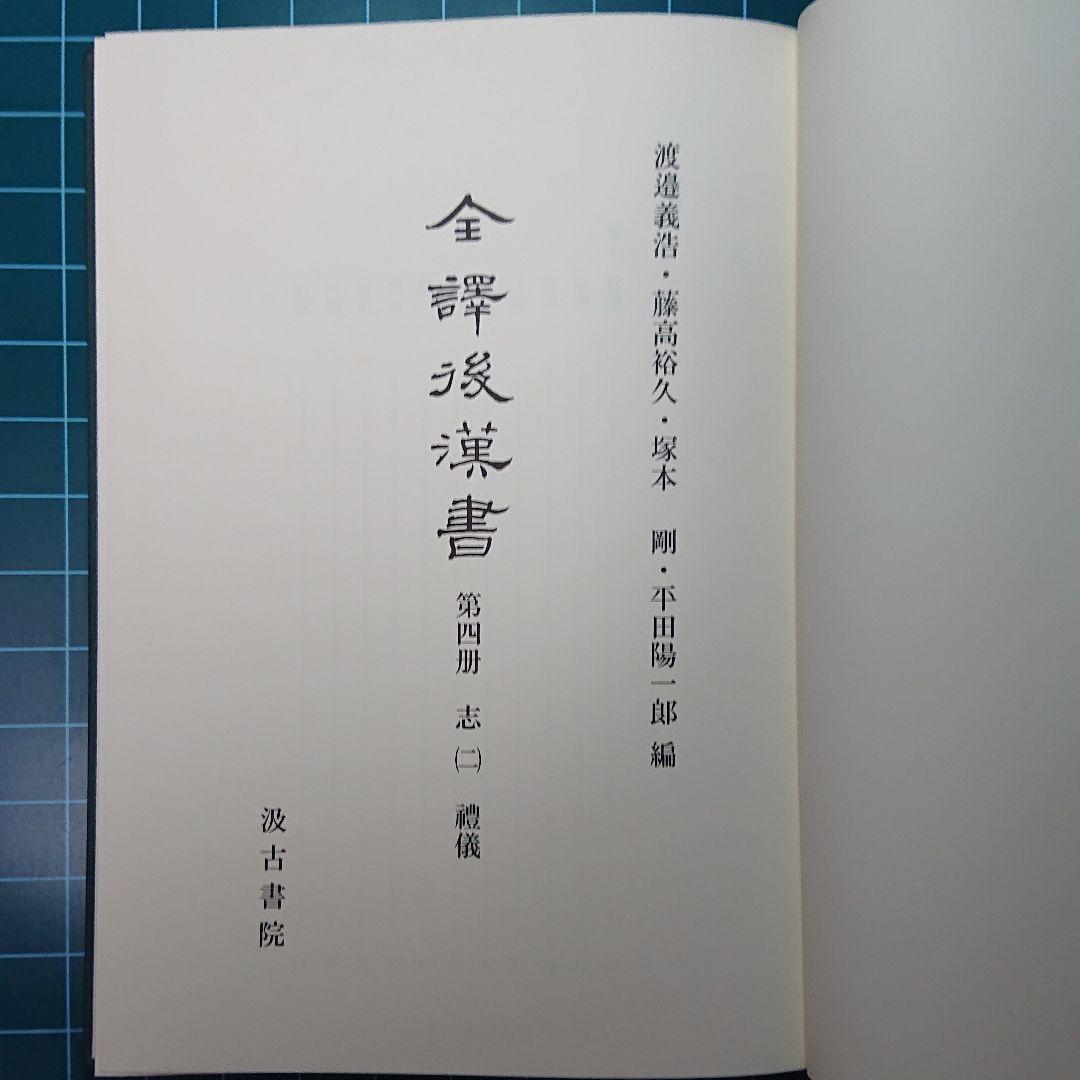 渡邉義浩・藤高裕久・塚本　剛・平田陽一郎 編
全譯後漢書 第四册 志㈡ 禮儀
汲古書院